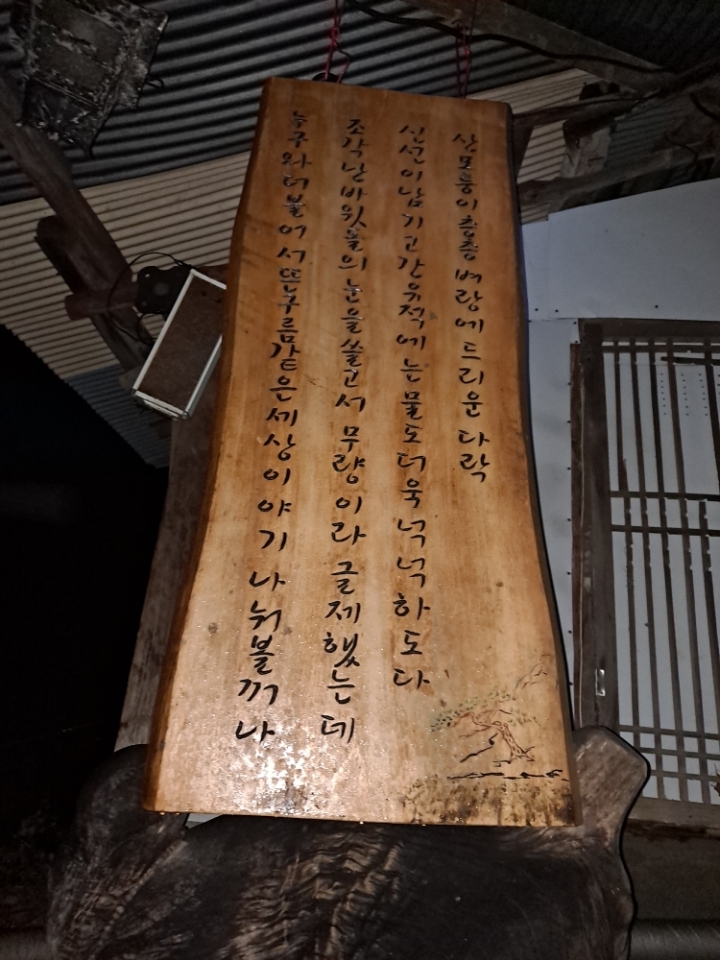 산모퉁이 층층 벼랑에 드리운 다락
신선이 남기고 간 유적에는 물도 더욱 넉넉하도다
조각난 바윗돌의 눈을 쓸고서 무량이라 글 제했는데
누구와 더불어서 뜬구름같은 세상이야기 나눠볼꺼나